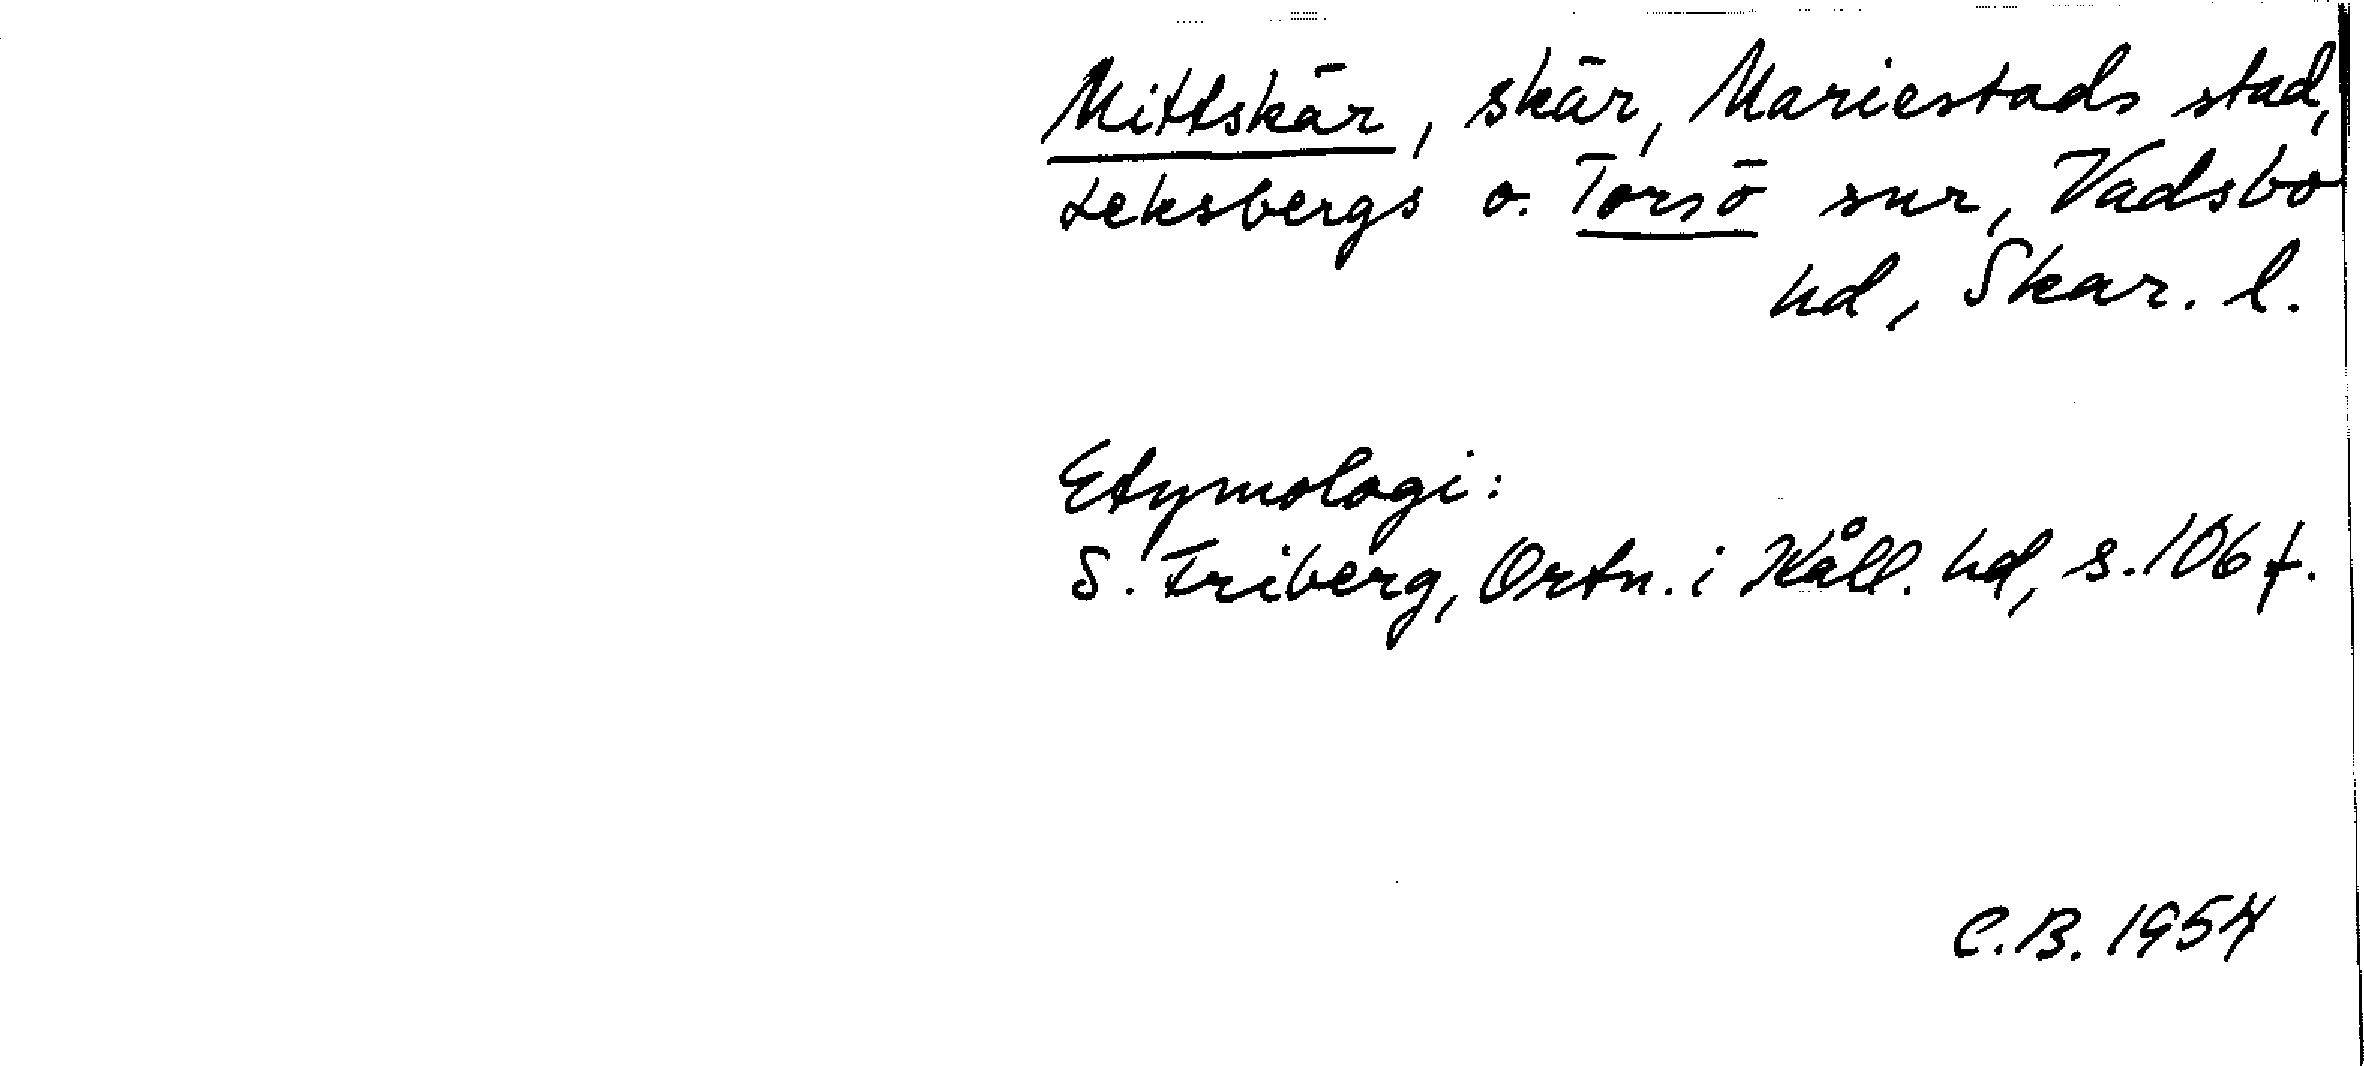 Mittskär, skär, Mariestads stad,
Leksbergs o. Torsö snr, Vadsbo
hd, Skar. l.
Etymologi:
S. Friberg, Ortn. i Kåll. hd, s. 106 f.
C.B. 1954